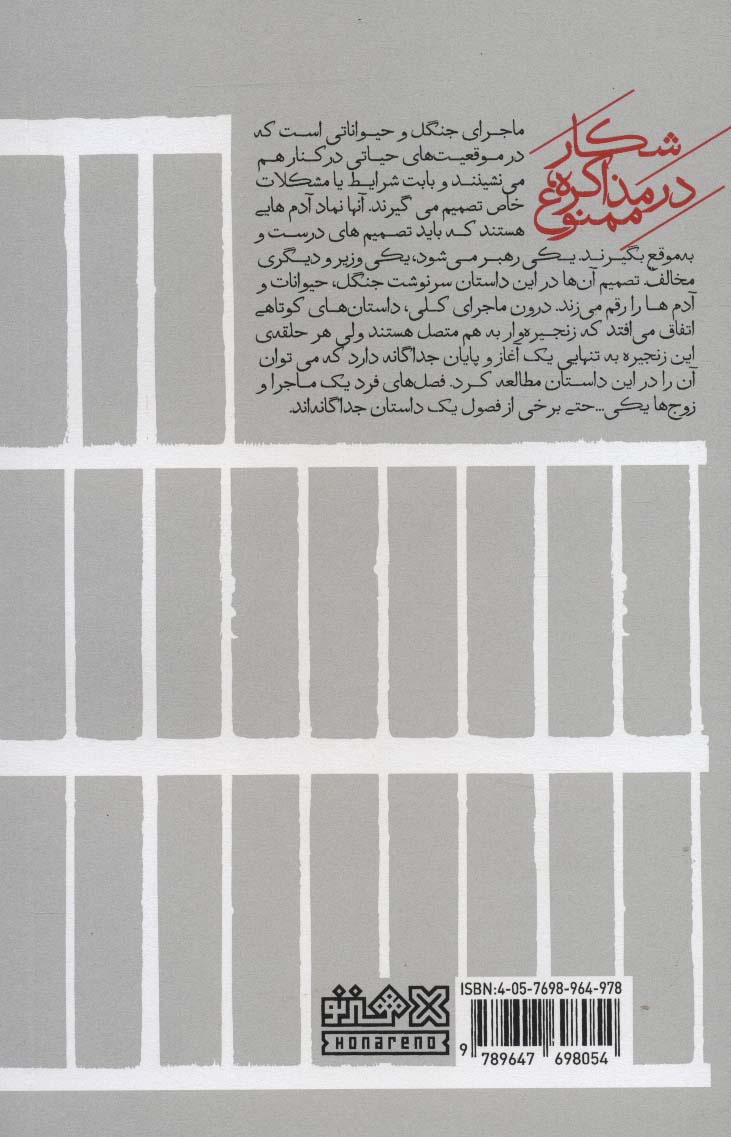 شکار
در مذاکره،
ممنوع
ماجرای جنگل و حیواناتی است که
در موقعیت‌های حیاتی در کنار هم
می‌نشینند و بابت شرایط یا مشکلات
خاص تصمیم می گیرند. آنها نماد آدم هایی
هستند که باید تصمیم های درست و
به‌موقع بگیرند. یکی رهبر می‌شود، یکی وزیر و دیگری
مخالف. تصمیم آن‌ها در این داستان سرنوشت جنگل، حیوانات و
آدم ها را رقم می‌زند. درون ماجرای کلی، داستان‌های کوتاهی
اتفاق می‌افتد که زنجیره‌وار به هم متصل هستند ولی هر حلقه‌ی
این زنجیره به تنهایی یک آغاز و پایان جداگانه دارد که می توان
آن را در این داستان مطالعه کرد. فصل‌های فرد یک ماجرا و
زوج‌ها یکی...حتی برخی از فصول یک داستان جداگانه‌اند.
ISBN:4-05-7698-964-978
9 789647 698054
هنرنو
Honareno